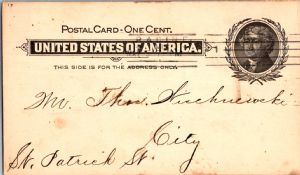 POSTAL CARD - ONE CENT.
UNITED STATES OF AMERICA.
THIS SIDE IS FOR THE ADDRESS ONLY.
Mr. Thos.
City
St. Patrick St.